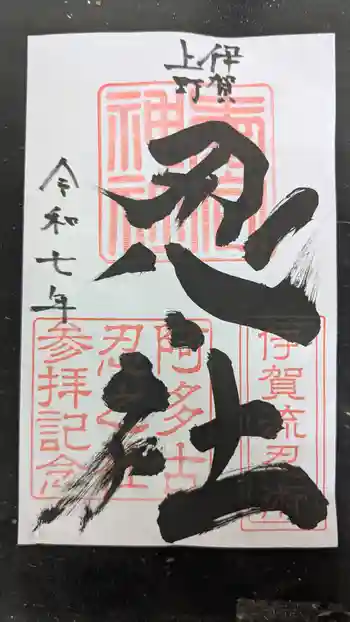 伊賀
上町
忍社
令和七年
伊賀流忍術
阿多古
忍之社
参拝記念